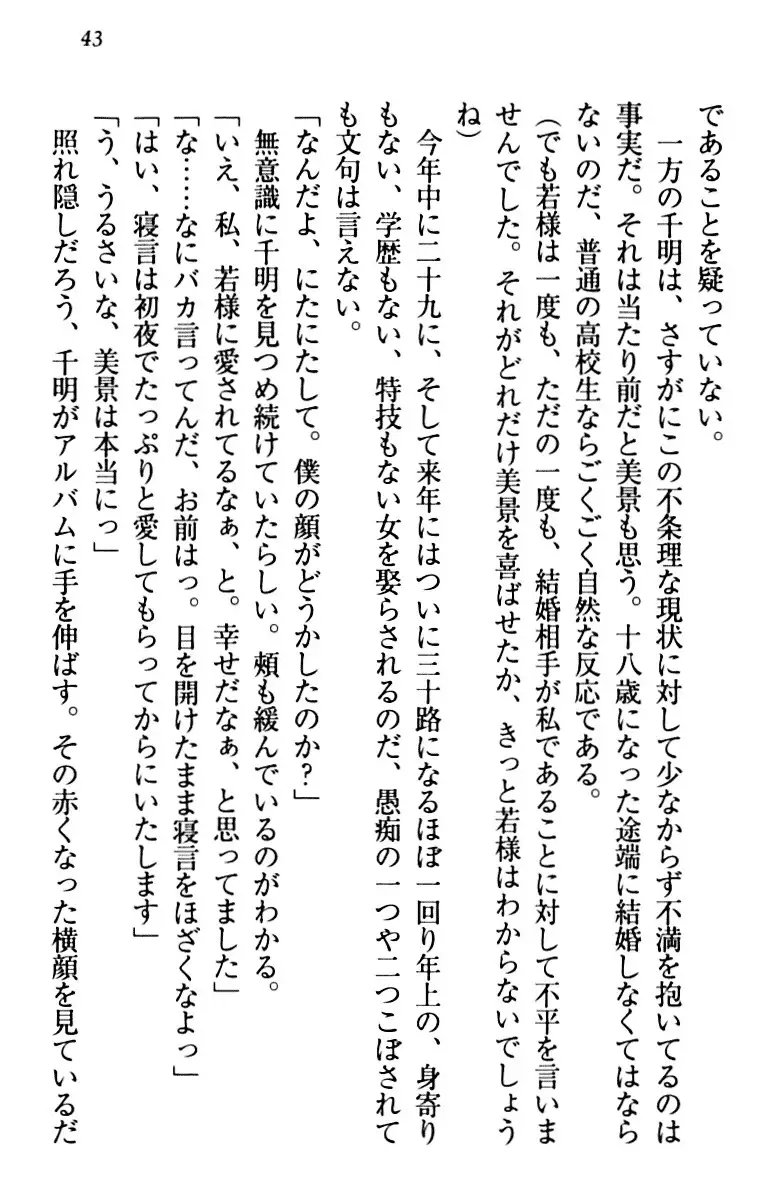 43
であることを疑っていない。
一方の千明は、さすがにこの不条理な現状に対して少なからず不満を抱いてるのは
事実だ。それは当たり前だと美景も思う。十八歳になった途端に結婚しなくてはなら
ないのだ、普通の高校生ならごくごく自然な反応である。
(でも若様は一度も、ただの一度も、結婚相手が私であることに対して不平を言いま
せんでした。それがどれだけ美景を喜ばせたか、きっと若様はわからないでしょう
ね)
今年中に二十九に、そして来年にはついに三十路になるほぼ一回り年上の、身寄り
もない、学歴もない、特技もない女を娶らされるのだ、愚痴の一つや二つこぼされて
も文句は言えない。
「なんだよ、にたにたして。僕の顔がどうかしたのか?」
無意識に千明を見つめ続けていたらしい。頰も緩んでいるのがわかる。
「いえ、私、若様に愛されてるなぁ、と。幸せだなぁ、と思ってました」
「な……なにバカ言ってんだ、お前はっ。目を開けたまま寝言をほざくなよっ」
「はい、寝言は初夜でたっぷりと愛してもらってからにいたします」
「う、うるさいな、美景は本当にっ」
照れ隠しだろう、千明がアルバムに手を伸ばす。その赤くなった横顔を見ているだ